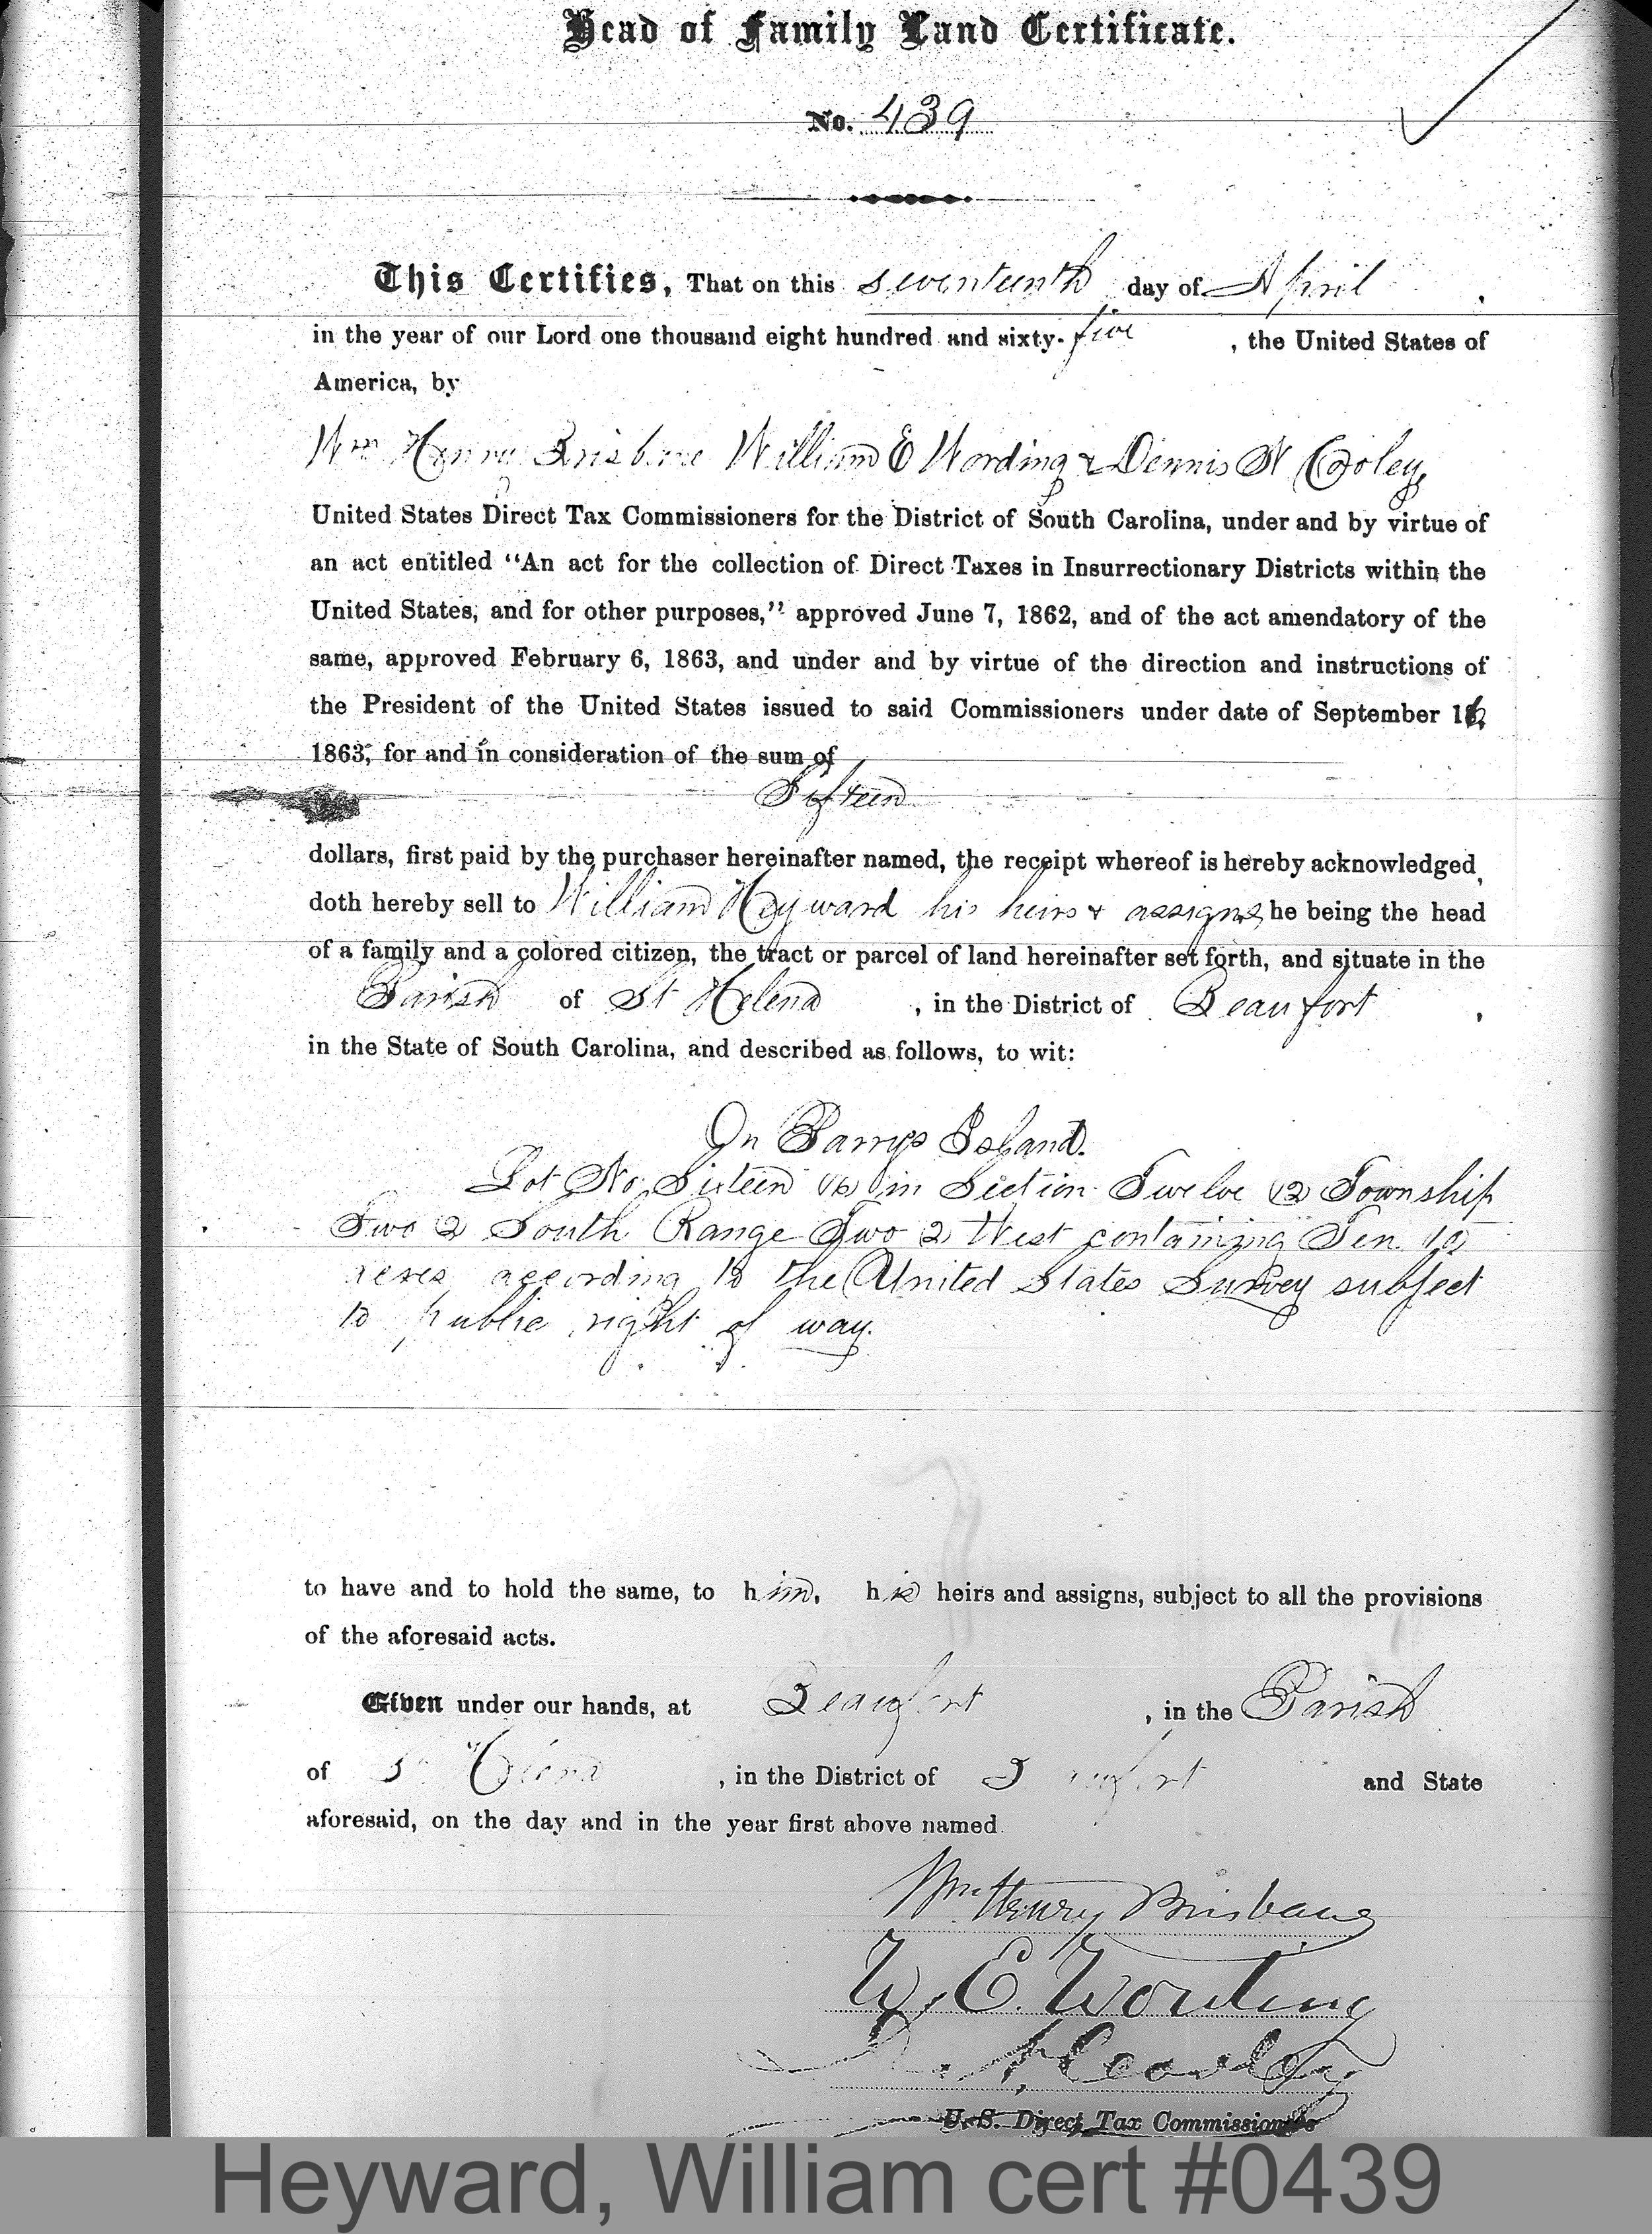 Head of Family Land Certificate.
No. 439
This Certifies, That on this seventeenth day of April ,
in the year of our Lord one thousand eight hundred and sixty-five , the United States of
America, by
Wm Henry Brisbane William E Wording & Dennis N Cooley,
United States Direct Tax Commissioners for the District of South Carolina, under and by virtue of
an act entitled “An act for the collection of Direct Taxes in Insurrectionary Districts within the
United States, and for other purposes,” approved June 7, 1862, and of the act amendatory of the
same, approved February 6, 1863, and under and by virtue of the direction and instructions of
the President of the United States issued to said Commissioners under date of September 16,
1863, for and in consideration of the sum of
Fifteen
dollars, first paid by the purchaser hereinafter named, the receipt whereof is hereby acknowledged,
doth hereby sell to William Heyward his heirs & assigns, he being the head
of a family and a colored citizen, the tract or parcel of land hereinafter set forth, and situate in the
Parish of St Helena , in the District of Beaufort ,
in the State of South Carolina, and described as follows, to wit:
On Parrys Island.
Lot No Sixteen (16) in Section Twelve (12) Township
Two (2) South Range Two (2) West containing Ten (10)
acres according to the United States Survey subject
to public right of way.
to have and to hold the same, to him, his heirs and assigns, subject to all the provisions
of the aforesaid acts.
Given under our hands, at Beaufort , in the Parish
of St Helena , in the District of Beaufort and State
aforesaid, on the day and in the year first above named.
Wm. Henry Brisbane
W. E. Wording
D. N. Cooley
U. S. Direct Tax Commissioners
Heyward, William cert #0439